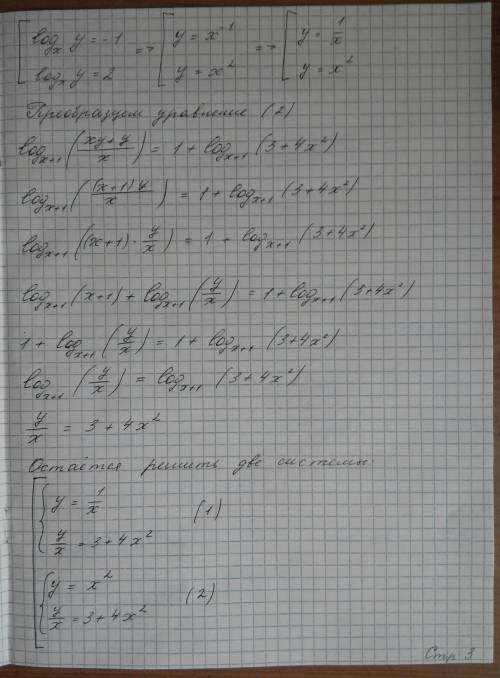 log_x y = -1 => y = x^-1 => y = 1/x
log_x y = 2 y = x^2 y = x^2
Преобразуем уравнение (2)
log_x+1 ((xy+y)/x) = 1 + log_x+1 (3+4x^2)
log_x+1 (((x+1)y)/x) = 1 + log_x+1 (3+4x^2)
log_x+1 ((x+1) · y/x) = 1 + log_x+1 (3+4x^2)
log_x+1 (x+1) + log_x+1 (y/x) = 1 + log_x+1 (3+4x^2)
1 + log_x+1 (y/x) = 1 + log_x+1 (3+4x^2)
log_x+1 (y/x) = log_x+1 (3+4x^2)
y/x = 3+4x^2
Остаётся решить две системы:
y = 1/x
(1)
y/x = 3+4x^2
y = x^2
(2)
y/x = 3+4x^2
Стр 3